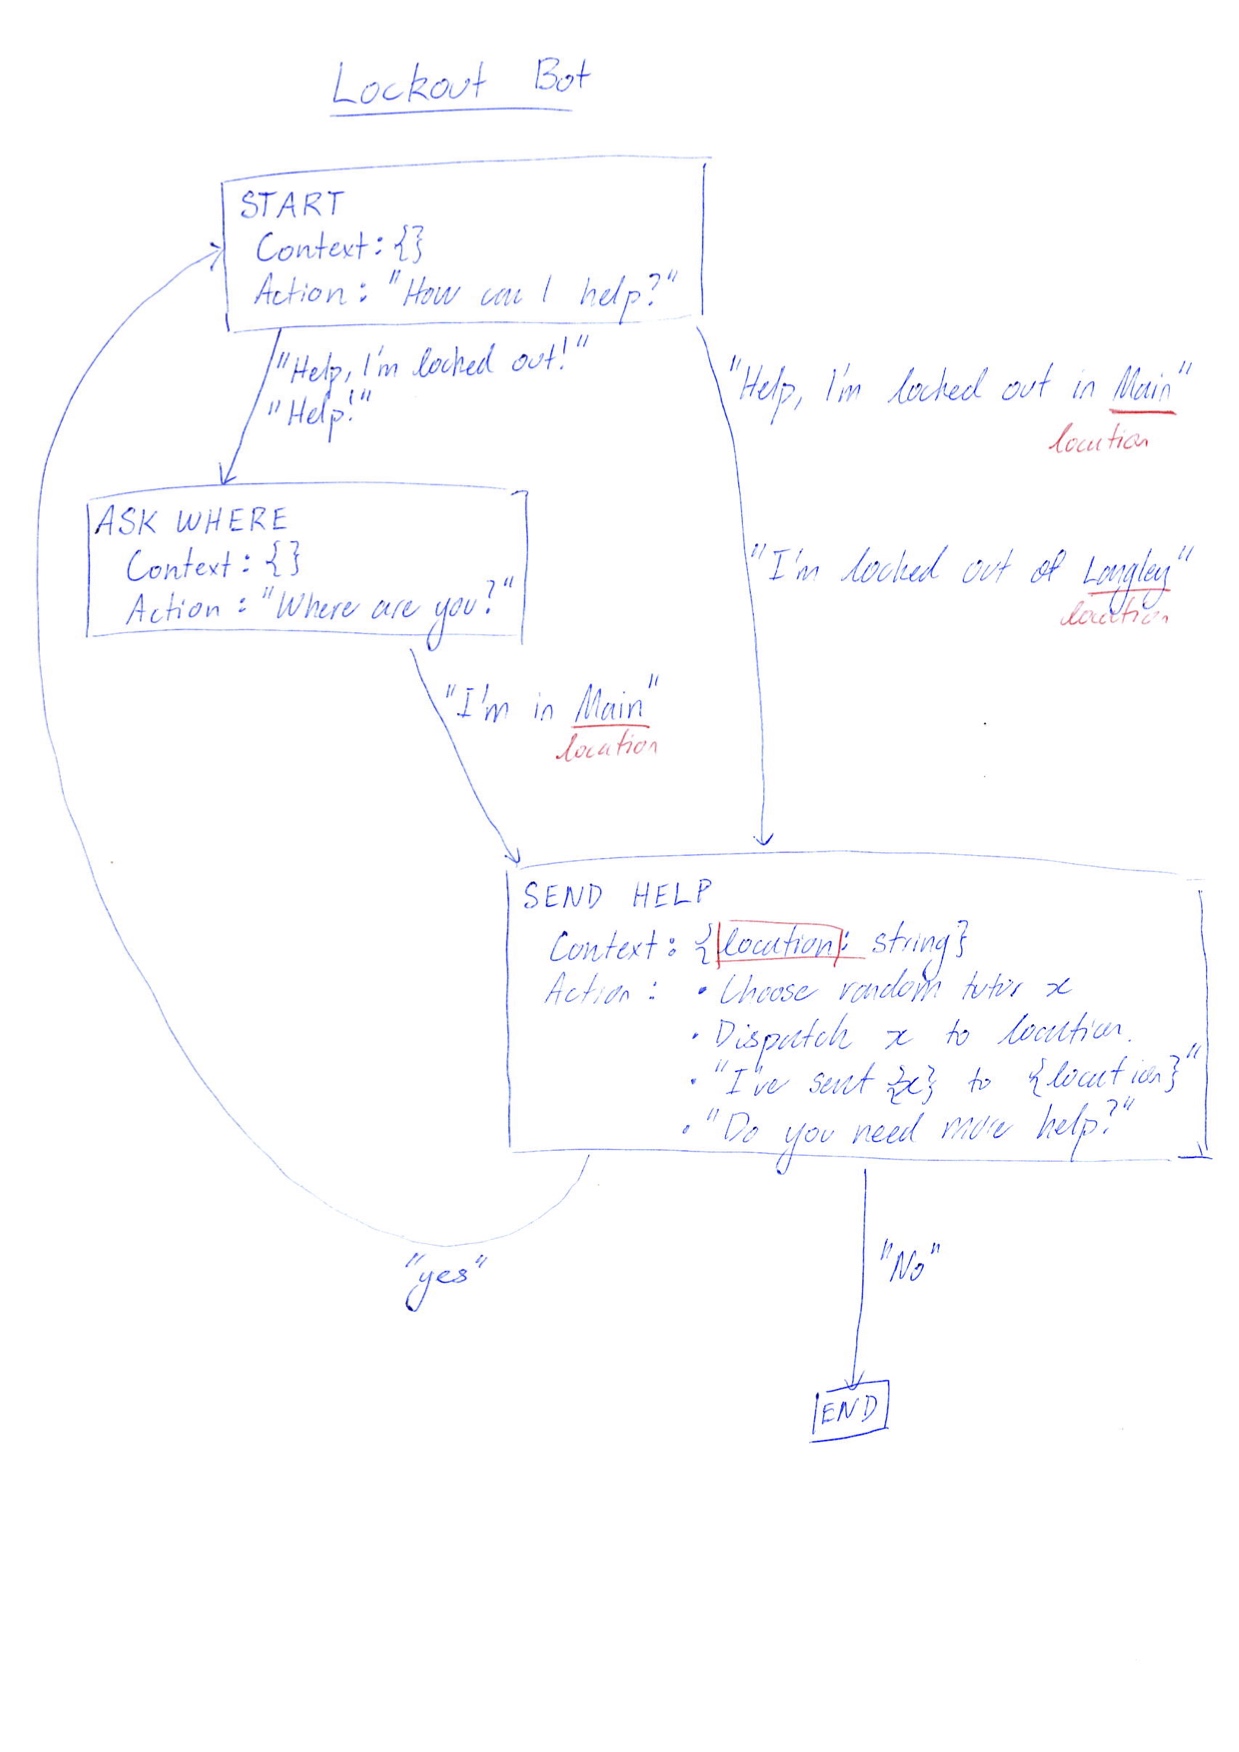 Lockout Bot
START
Context: {}
Action: "How can I help?"
"Help, I'm locked out!"
"Help!"
"Help, I'm locked out in Main"
location
ASK WHERE
Context: {}
Action: "Where are you?"
"I'm locked out of Langley"
location
"I'm in Main"
location
SEND HELP
Context: {location: string}
Action: • Choose random tutor x
• Dispatch x to location.
• "I've sent {x} to {location}"
• "Do you need more help?"
"yes"
"No"
END